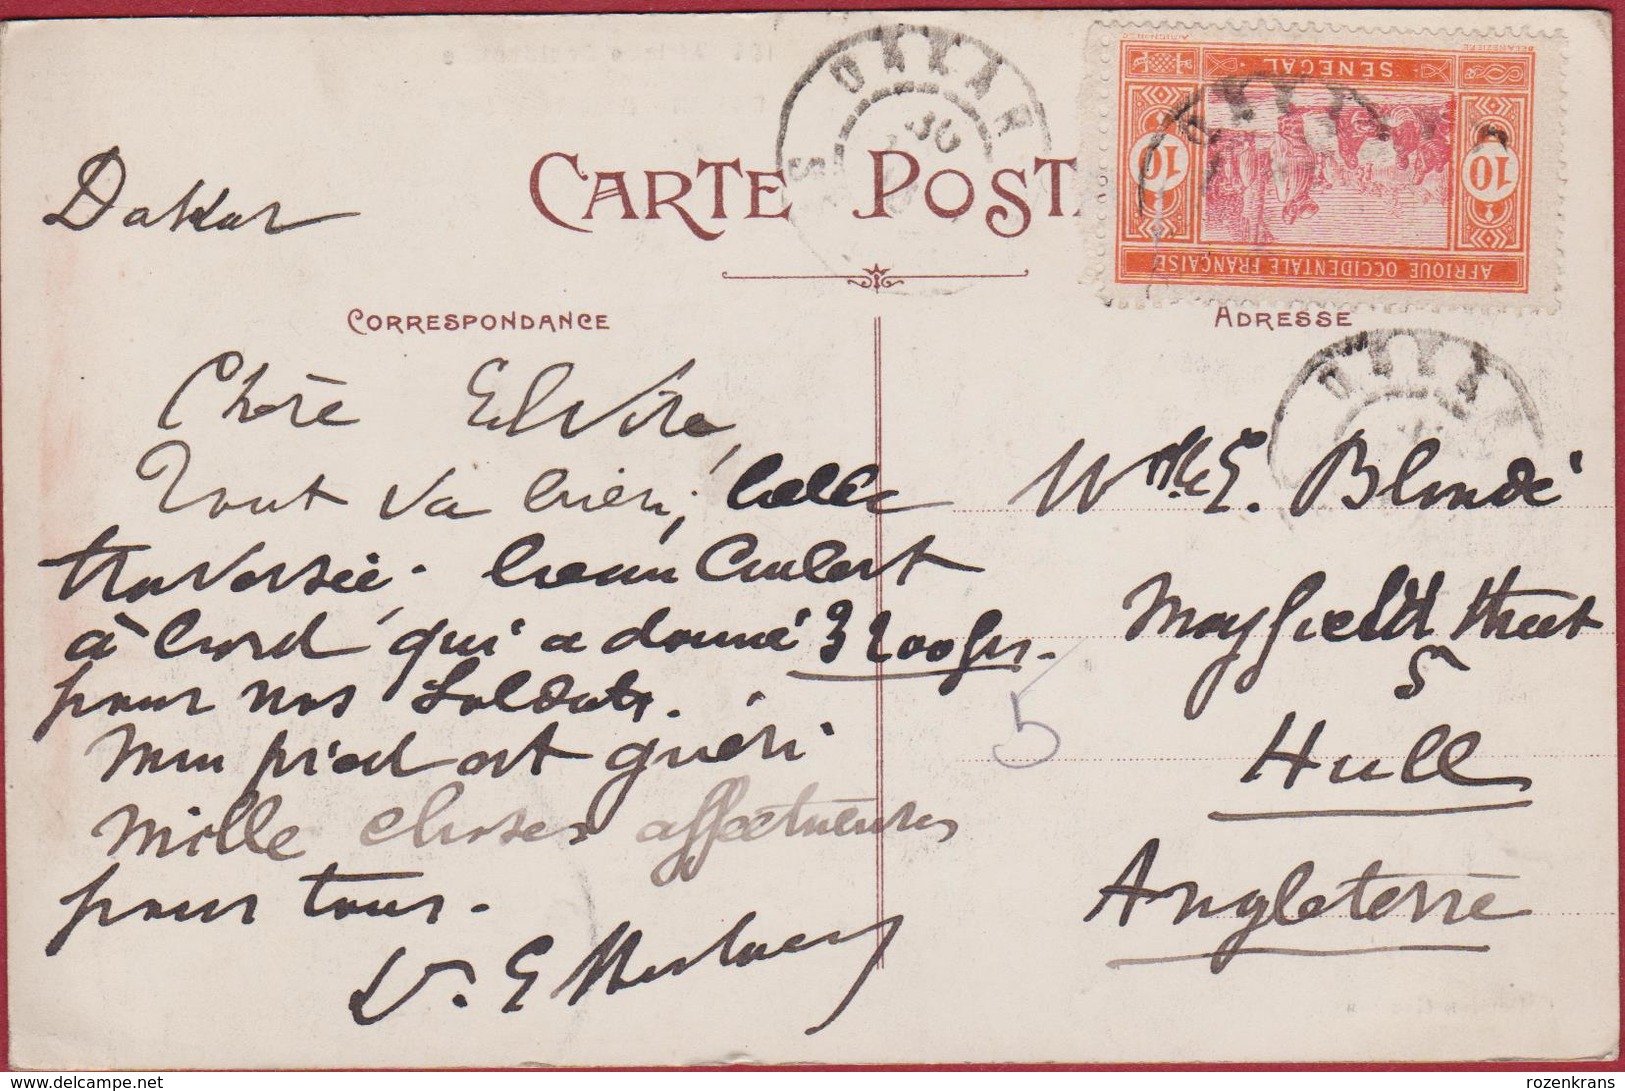 DAKAR
SENEGAL
10 10
AFRIQUE OCCIDENTALE FRANÇAISE
CARTE POST
Dakar
CORRESPONDANCE
ADRESSE
DAKAR
Chère Elvire,
Tout va bien; belle
traversée; beau concert
à bord qui a donné 3200frs.
pour nos soldats.
Mon pied est guéri
Mille choses affectueuses
pour tous.
Mlle E. Blondé
Mayfield Street
5
Hull
Angleterre
5
rozenkrans